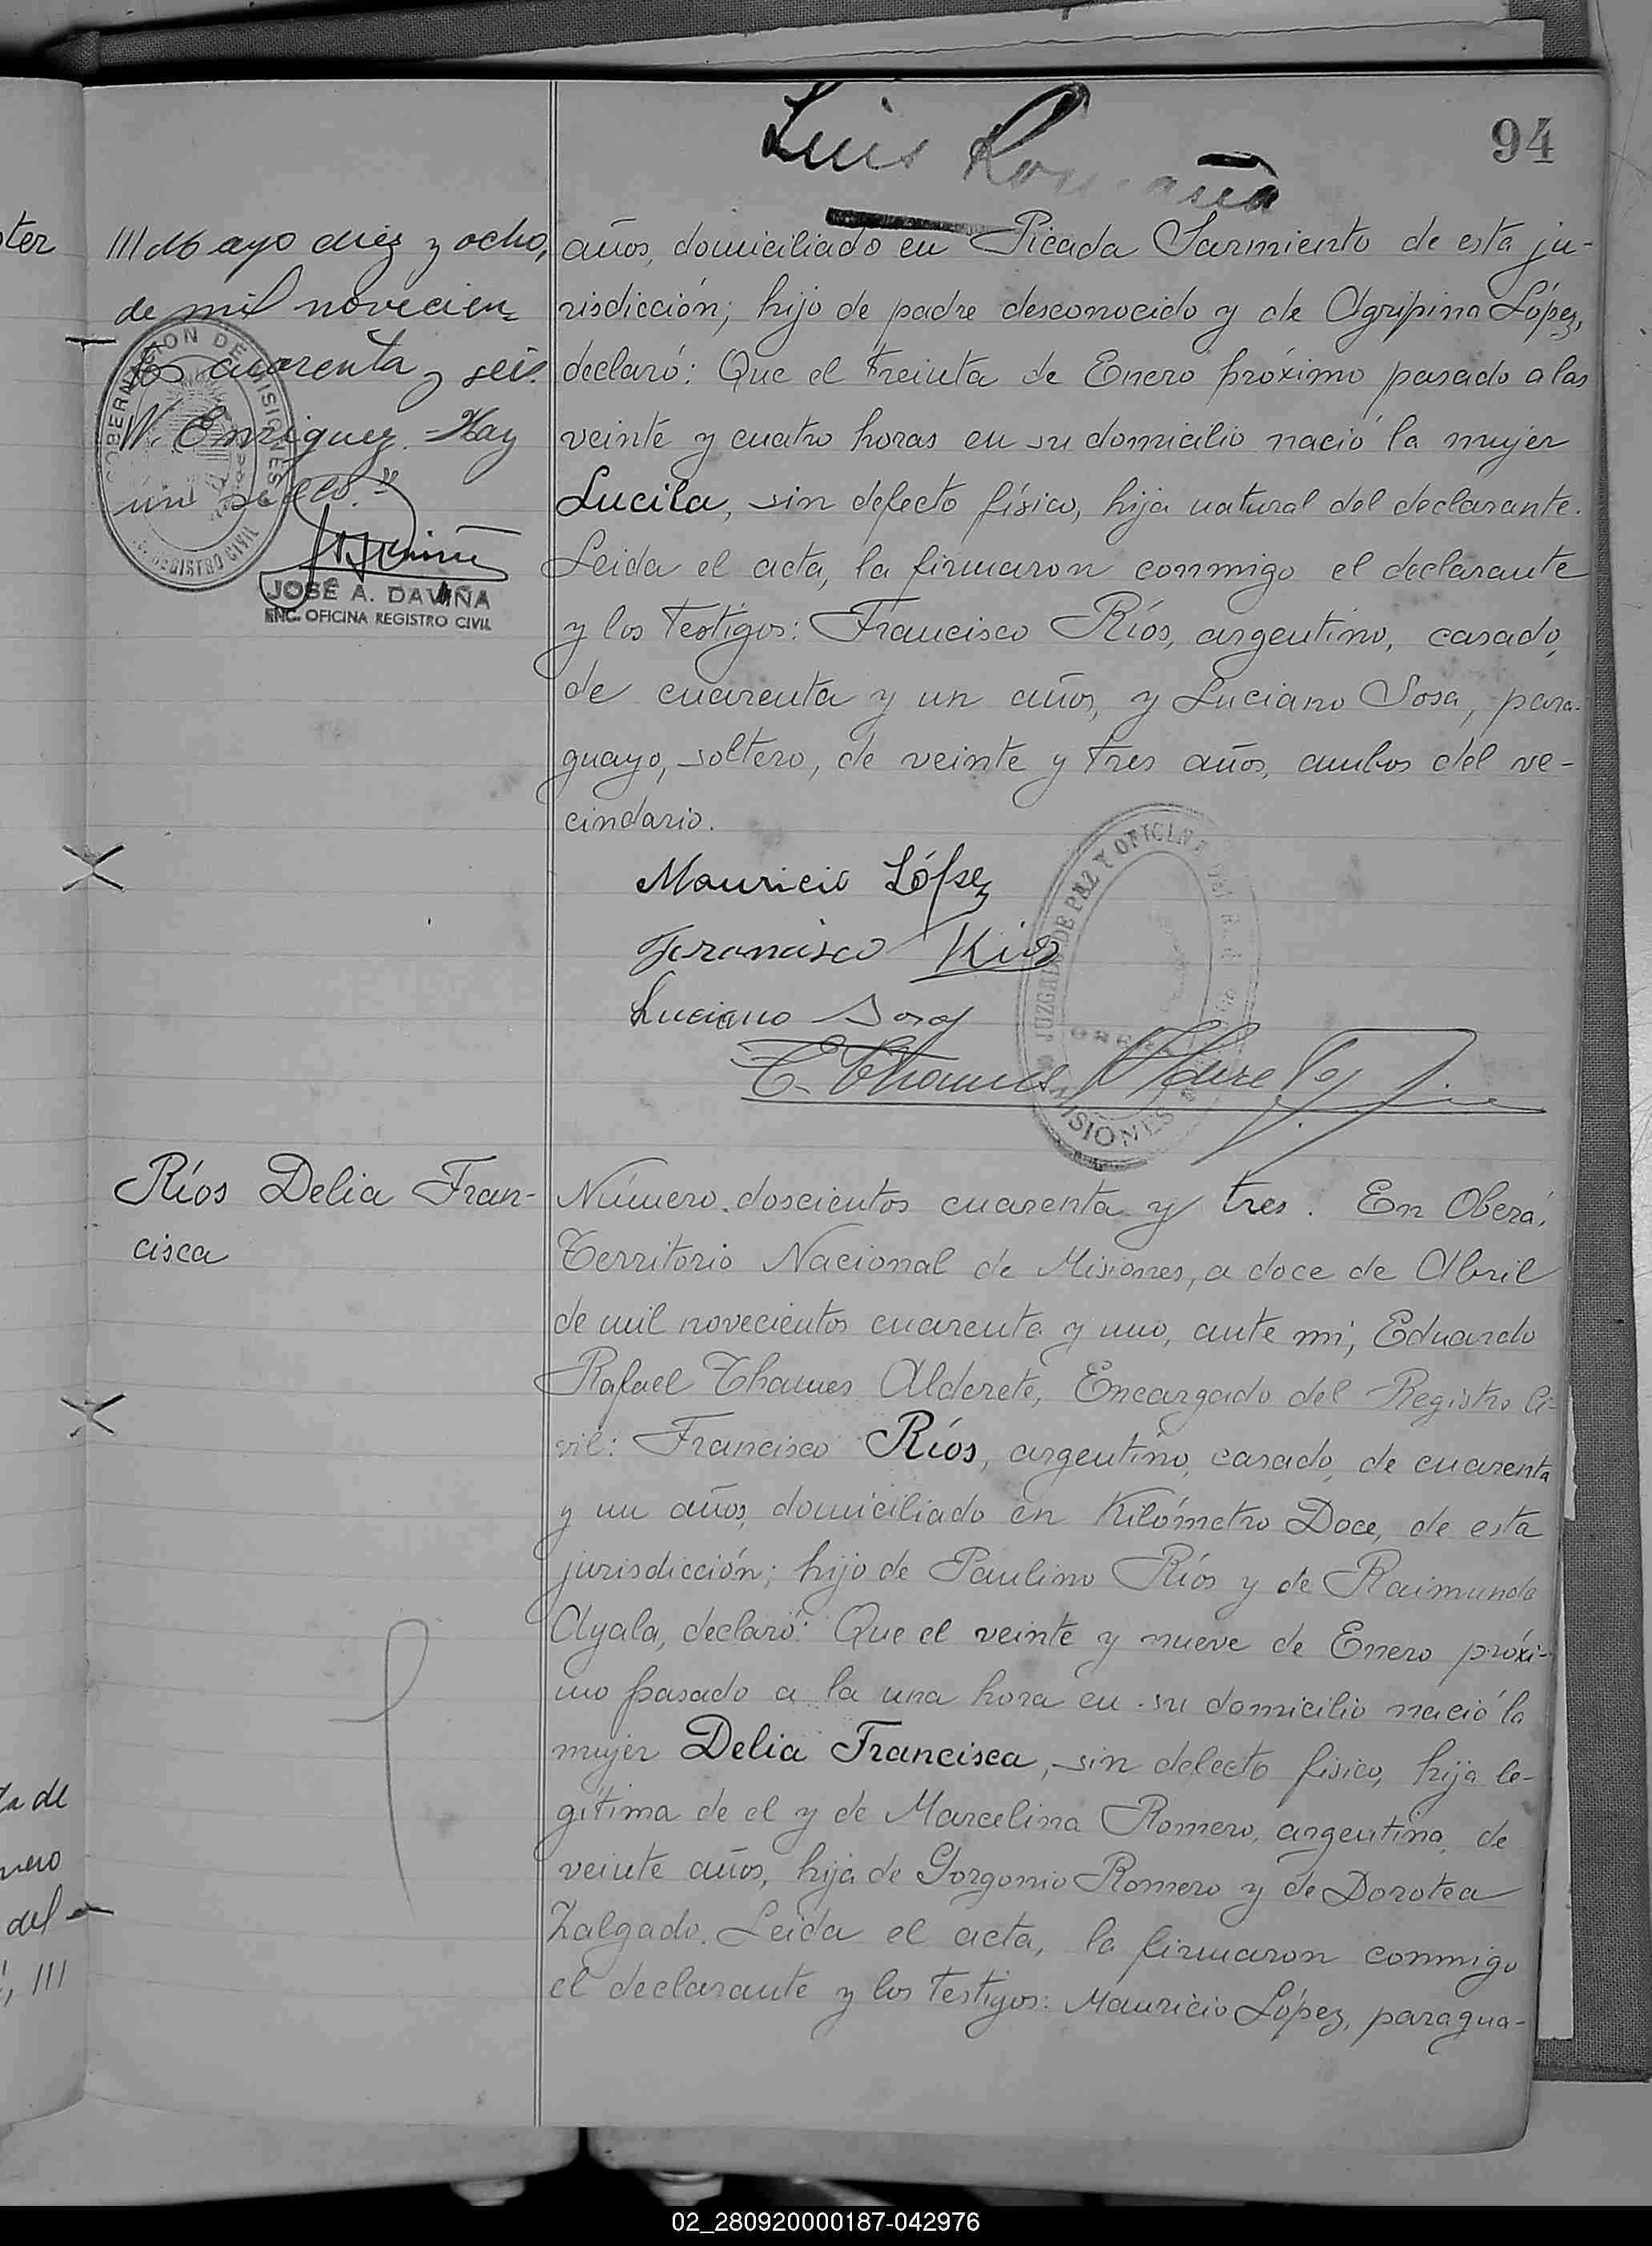 Luis Romaña
94
ter
III Mayo diez y ocho,
de mil novecien=
tos cuarenta y seis.
N. Enriquez. - Hay
un sello."
GOBERNACION DE MISIONES
REGISTRO CIVIL
JOSÉ A. DAVIÑA
ENC. OFICINA REGISTRO CIVIL
años, domiciliado en Picada Sarmiento de esta ju-
risdicción; hijo de padre desconocido y de Agripina López,
declaró: Que el treinta de Enero próximo pasado a las
veinte y cuatro horas en su domicilio nació la mujer
Lucila, sin defecto físico, hija natural del declarante.
Leida el acta, la firmaron conmigo el declarante
y los testigos: Francisco Ríos, argentino, casado,
de cuarenta y un años, y Luciano Sosa, para-
guayo, soltero, de veinte y tres años, ambos del ve-
cindario.
Mauricio López
Francisco Rios
Luciano Sosa
JUZGADO DE PAZ Y OFICINA DEL R. C.
MISIONES
E. Thames Alderete
Ríos Delia Fran-
cisca
Número doscientos cuarenta y tres. En Oberá,
Territorio Nacional de Misiones, a doce de Abril
de mil novecientos cuarenta y uno, ante mí, Eduardo
Rafael Thames Alderete, Encargado del Registro Ci-
vil: Francisco Ríos, argentino, casado, de cuarenta
y un años, domiciliado en Kilómetro Doce, de esta
jurisdicción; hijo de Paulino Ríos y de Raimunda
Ayala, declaró: Que el veinte y nueve de Enero próxi-
mo pasado a la una hora en su domicilio nació la
mujer Delia Francisca, sin defecto físico, hija le-
gítima de el y de Marcelina Romero, argentina, de
veinte años, hija de Gorgonio Romero y de Dorotea
Zalgado. Leida el acta, la firmaron conmigo
el declarante y los testigos: Mauricio López, paragua-
de
del
III
02_280920000187-042976